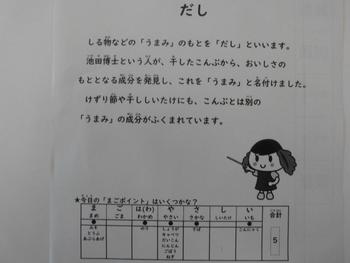 だし
しる物などの「うまみ」のもとを「だし」といいます。
池田博士という人が、干したこんぶから、おいしさの
もととなる成分を発見し、これを「うまみ」と名付けました。
けずり節や干ししいたけにも、こんぶとは別の
「うまみ」の成分がふくまれています。
★今日の「まごポイント」はいくつかな？
ま ご は(わ) や さ し い 合計
まめ ごま わかめ やさい さかな しいたけ いも
● ● ● ● ●
みそ のり しょうが さば こんにゃく 5
とうふ キャベツ
あぶらあげ だいこん
にんじん
ごぼう
ねぎ